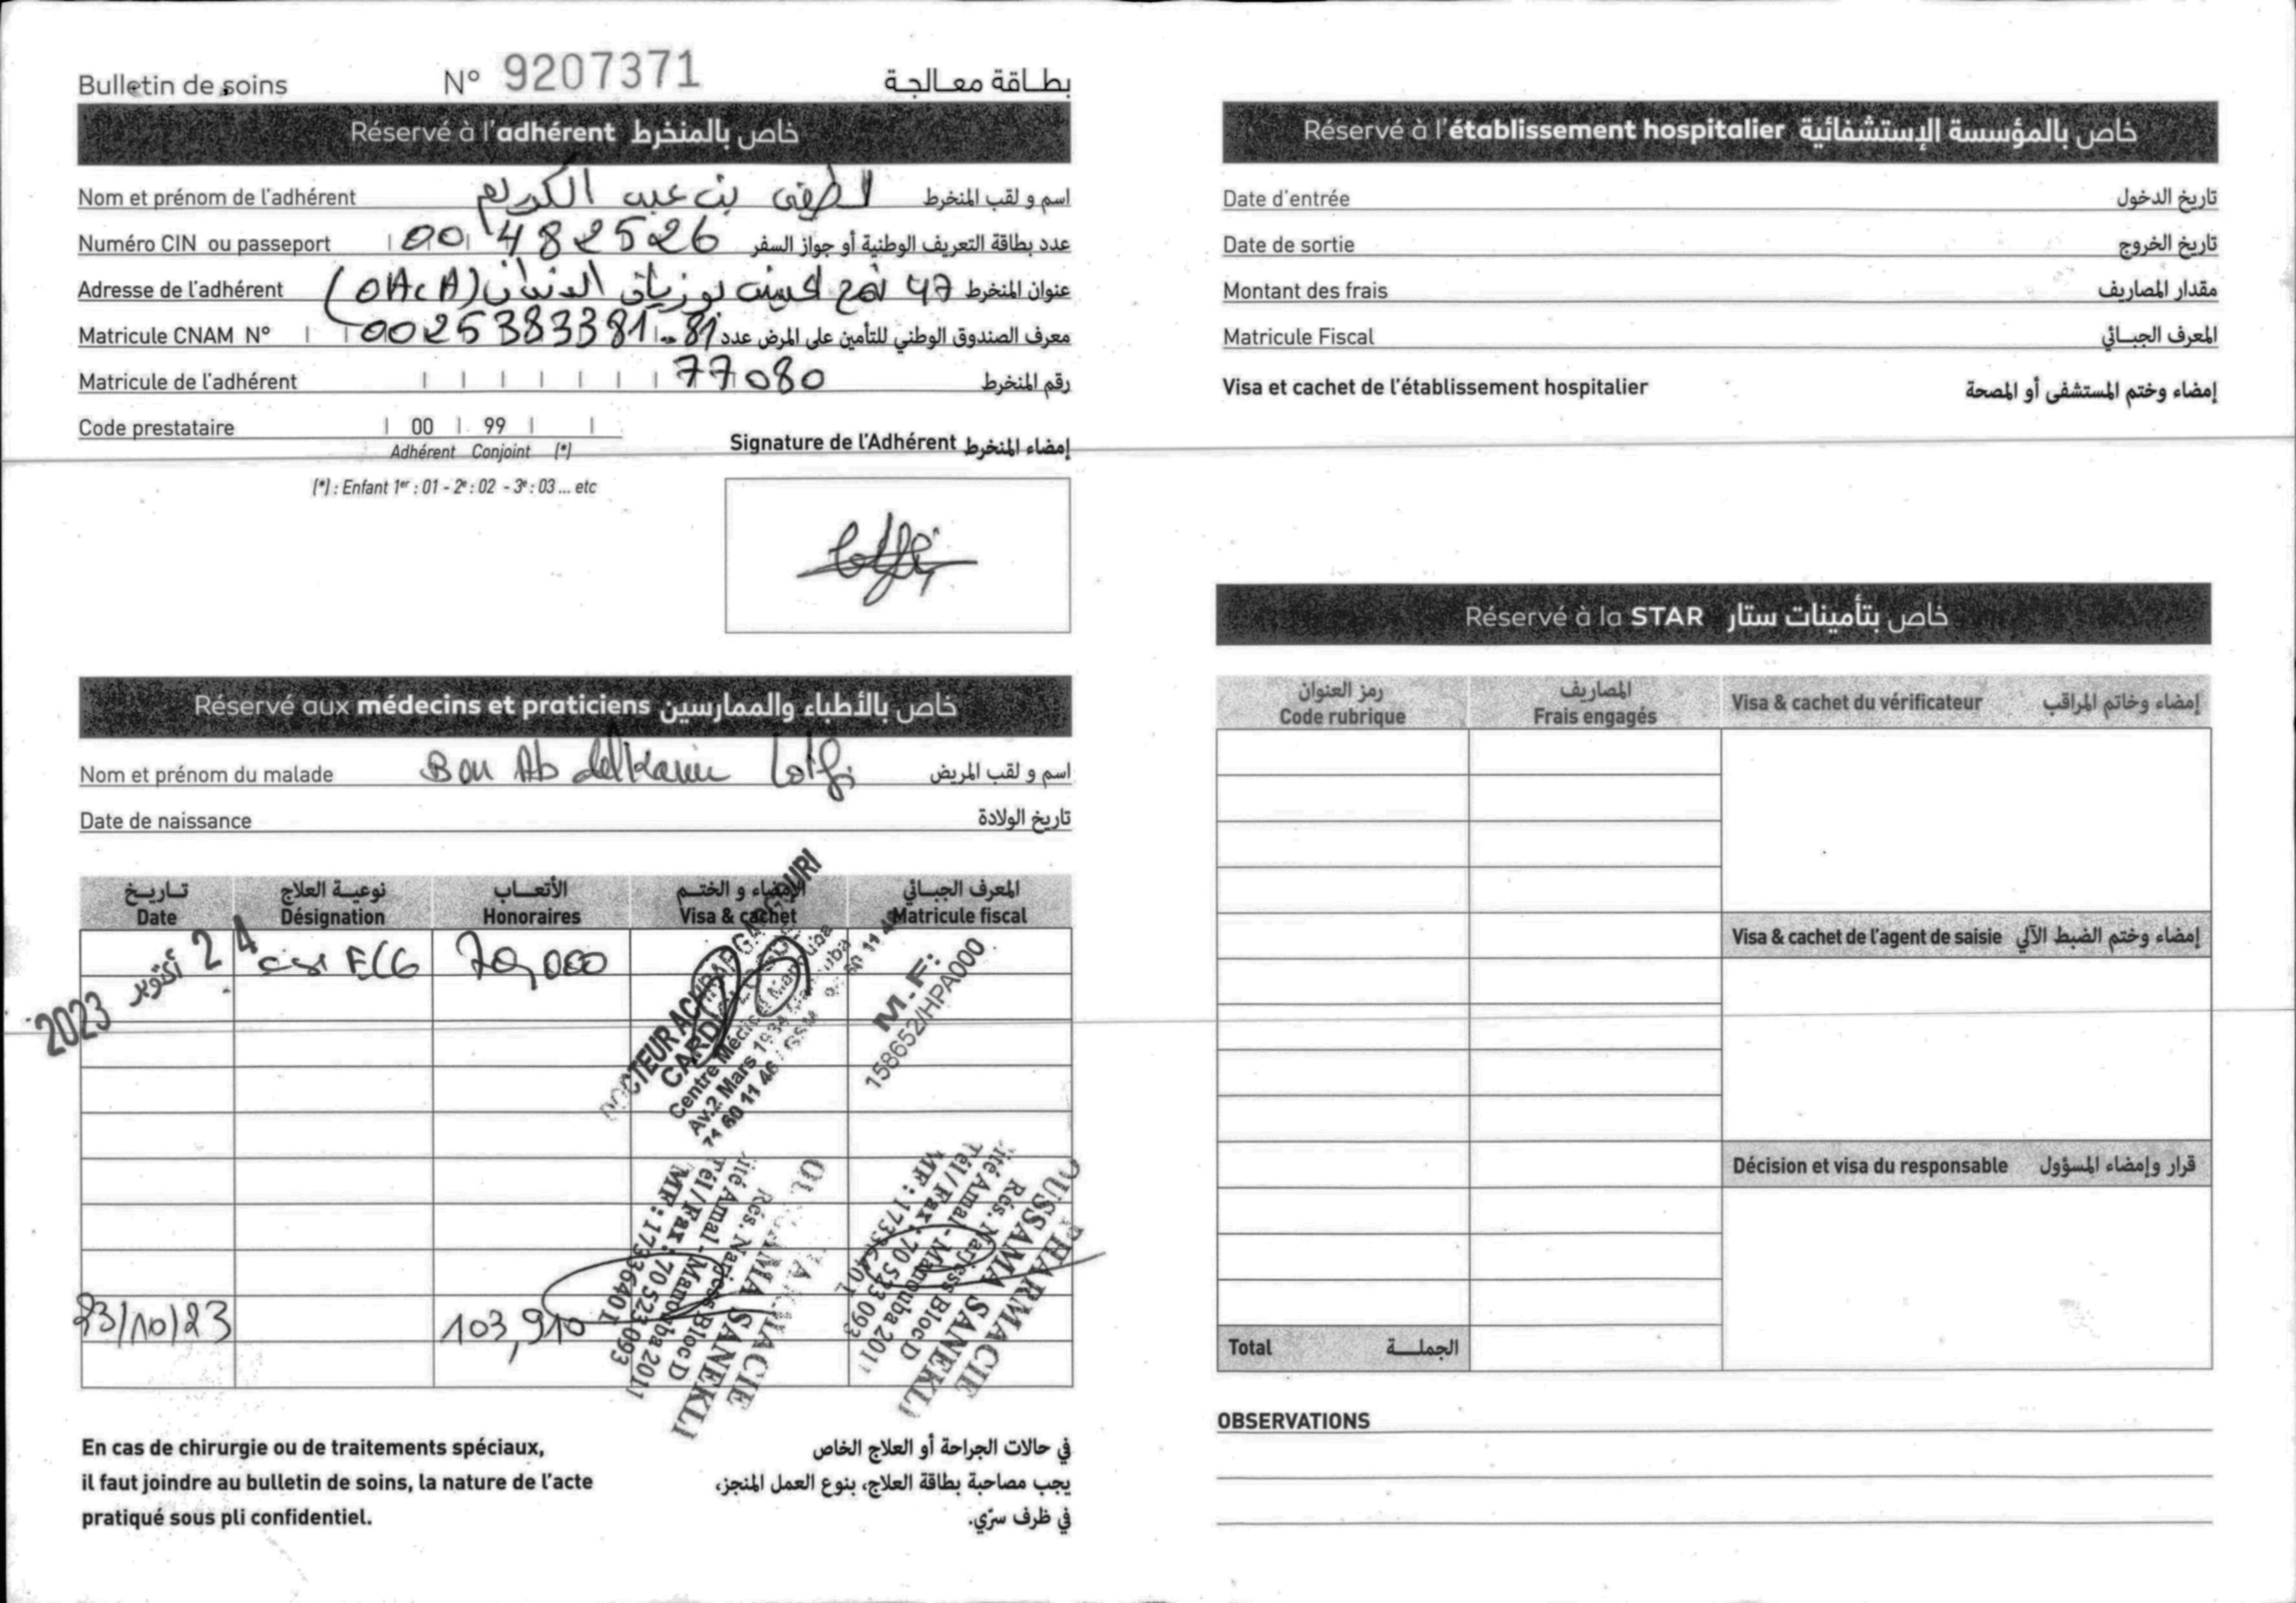 Bulletin de soins N° 9207371 بطاقة معالجة
Réservé à l'adhérent خاص بالمنخرط
Nom et prénom de l'adhérent لطفي بن عبد الكريم اسم و لقب المنخرط
Numéro CIN ou passeport 00482526 عدد بطاقة التعريف الوطنية أو جواز السفر
Adresse de l'adhérent 47 نهج (OACA) عنوان المنخرط
Matricule CNAM N° 0025383381-81 معرف الصندوق الوطني للتأمين على المرض عدد
Matricule de l'adhérent 77080 رقم المنخرط
Code prestataire 00 99
Adhérent Conjoint (*)
Signature de l'Adhérent إمضاء المنخرط
(*) : Enfant 1er : 01 - 2e : 02 - 3e : 03 ... etc
Lotfi
Réservé aux médecins et praticiens خاص بالأطباء والممارسين
Nom et prénom du malade Ben Abdelkarim Lotfi اسم و لقب المريض
Date de naissance تاريخ الولادة
تاريخ نوعية العلاج الأتعاب الإمضاء و الختم المعرف الجبائي
Date Désignation Honoraires Visa & cachet Matricule fiscal
2 4 أكتوبر 2023 ECG 70,000
DOCTEUR ACHRAF
Centre Médical Manouba
Av.2 Mars 1934 Manouba
71 60 11 46 / GSM
M.F:
158652/HPA000
23/10/23 103,910
PHARMACIE
OUSSAMA SANEKLI
Rés. Narjess Bloc D
Cité Amal - Manouba 2011
Tél / Fax : 70 523 093
MF : 1733640 L
PHARMACIE
OUSSAMA SANEKLI
Rés. Narjess Bloc D
Cité Amal - Manouba 2011
Tél / Fax : 70 523 093
MF : 1733640 L
En cas de chirurgie ou de traitements spéciaux,
il faut joindre au bulletin de soins, la nature de l'acte
pratiqué sous pli confidentiel.
في حالات الجراحة أو العلاج الخاص
يجب مصاحبة بطاقة العلاج، بنوع العمل المنجز،
في ظرف سرّي.
Réservé à l'établissement hospitalier خاص بالمؤسسة الإستشفائية
Date d'entrée تاريخ الدخول
Date de sortie تاريخ الخروج
Montant des frais مقدار المصاريف
Matricule Fiscal المعرف الجبائي
Visa et cachet de l'établissement hospitalier إمضاء وختم المستشفى أو المصحة
Réservé à la STAR خاص بتأمينات ستار
رمز العنوان المصاريف
Code rubrique Frais engagés Visa & cachet du vérificateur إمضاء وخاتم المراقب
Visa & cachet de l'agent de saisie إمضاء وختم الضبط الآلي
Décision et visa du responsable قرار وإمضاء المسؤول
Total الجملة
OBSERVATIONS